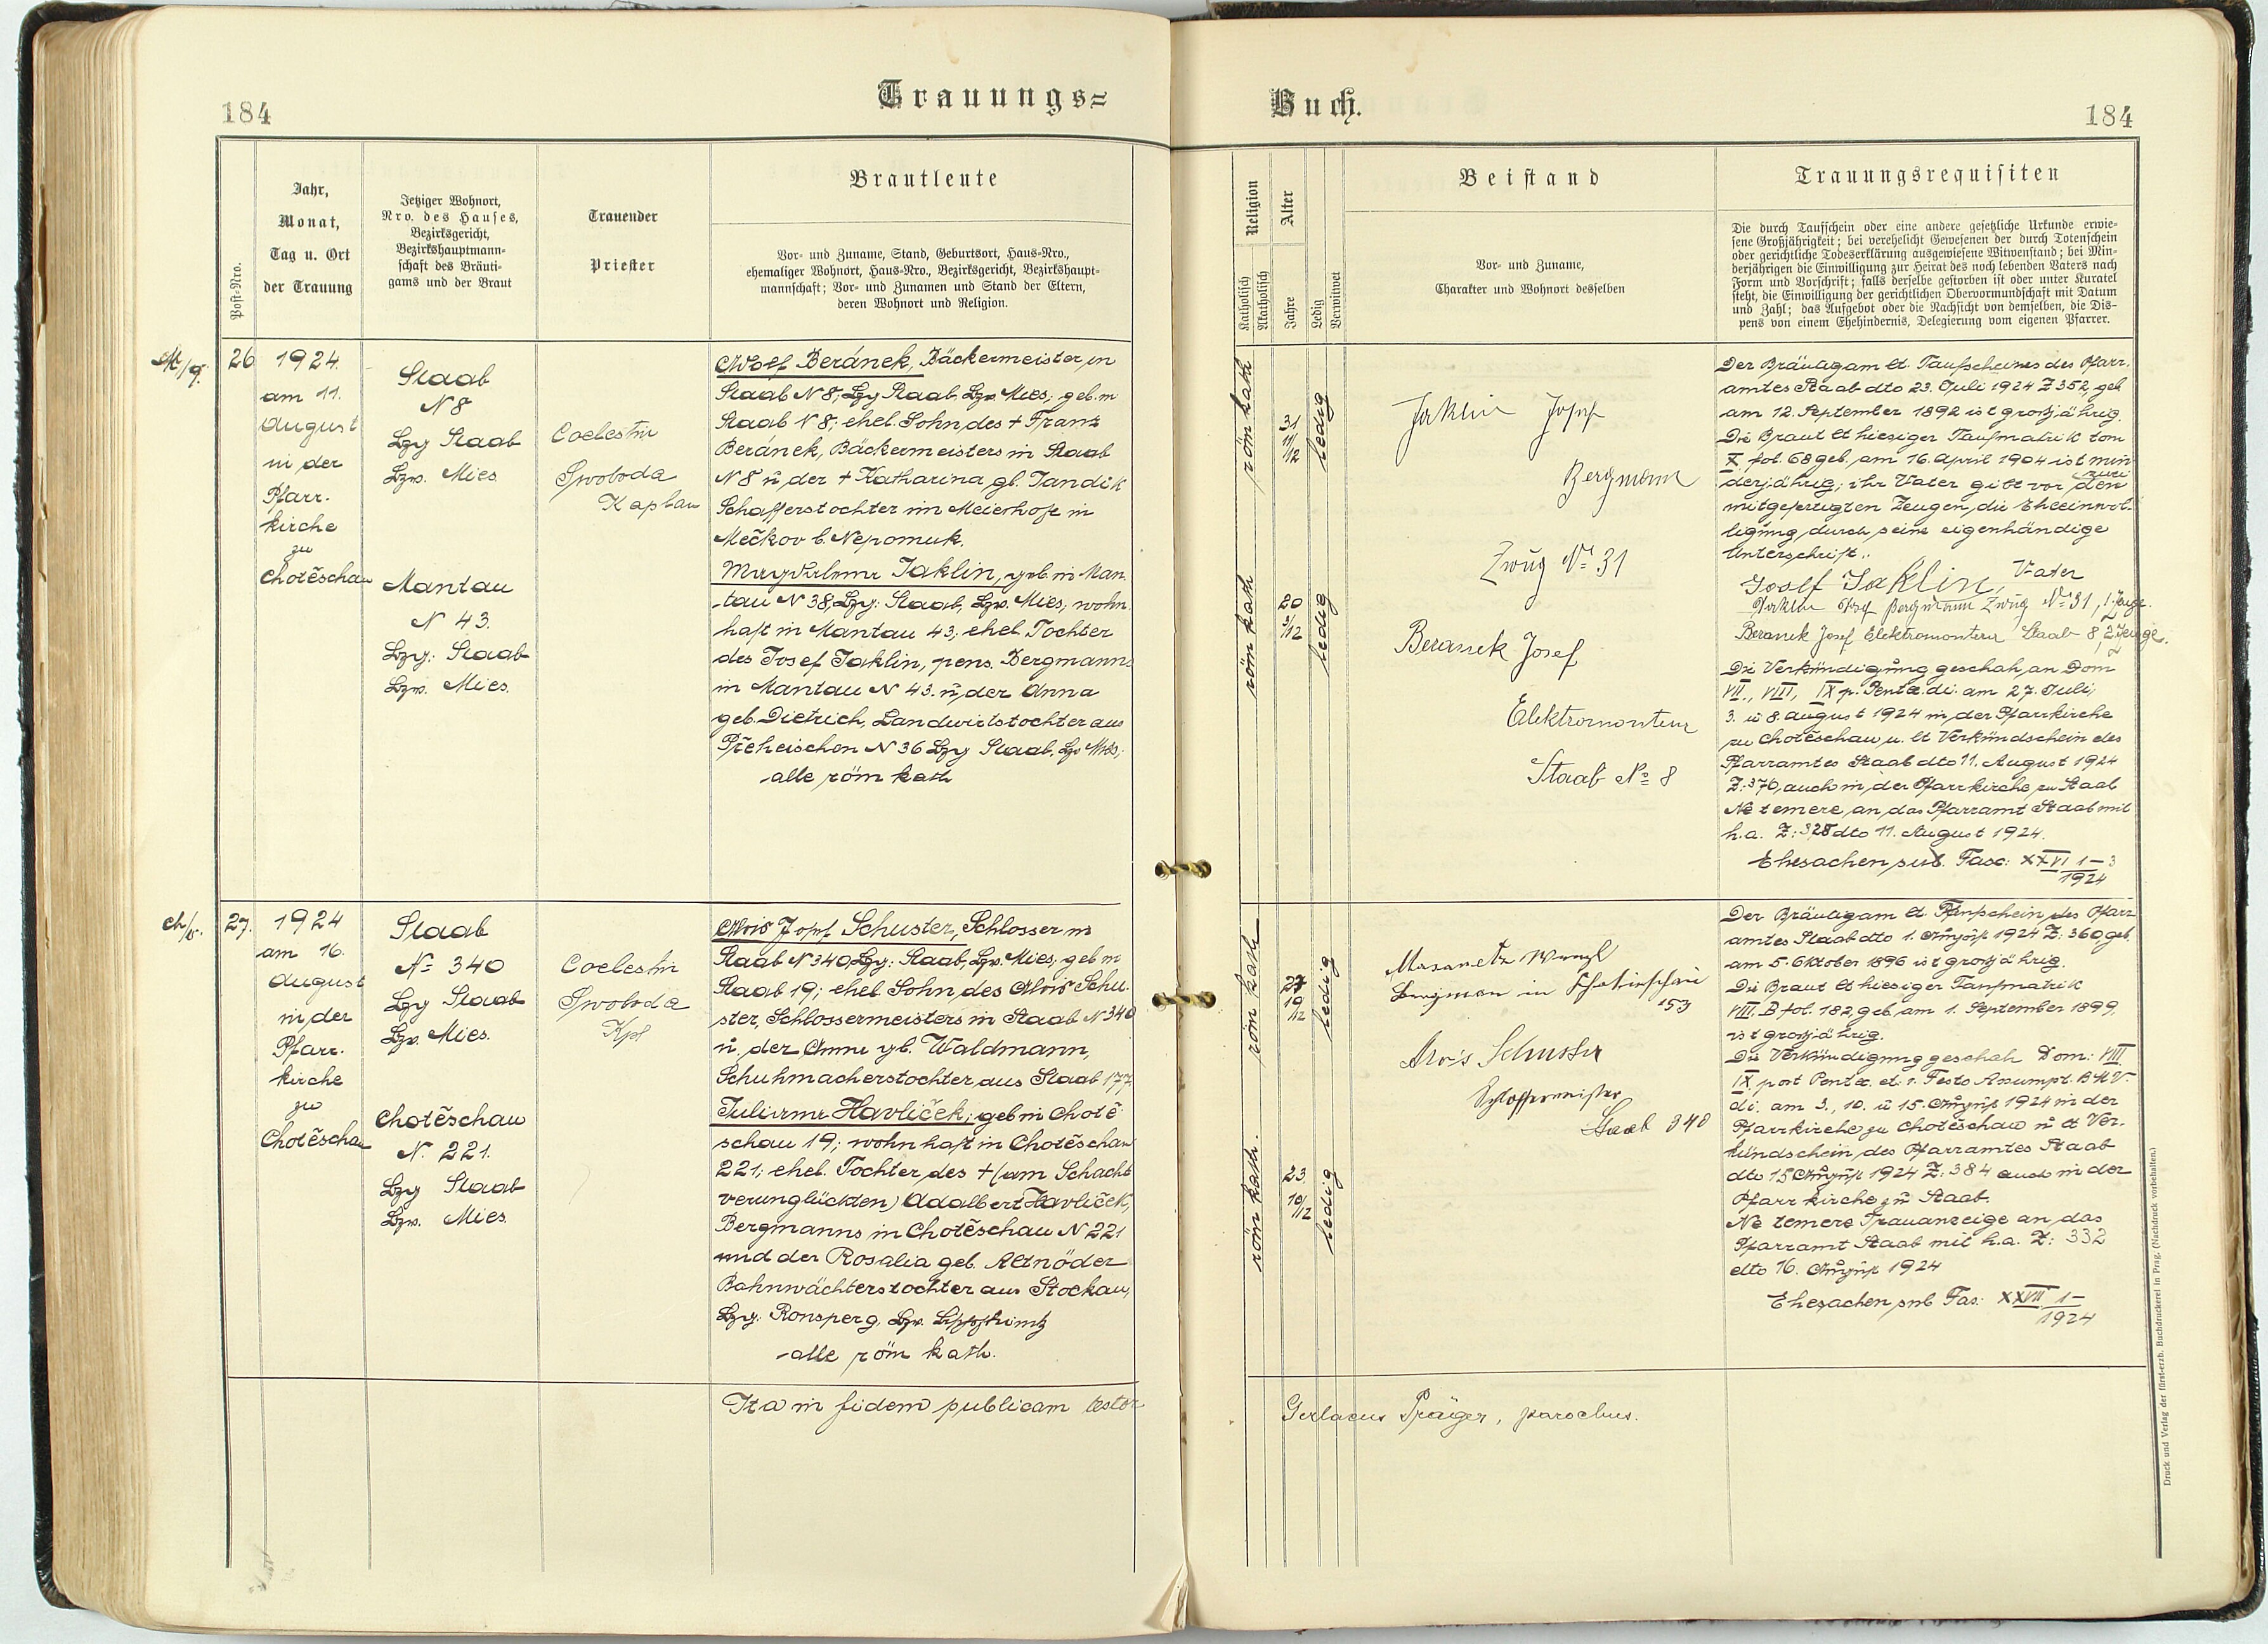 184
Trauungs=
Post=Nro.
Jahr,
Monat,
Tag u. Ort
der Trauung
Jetziger Wohnort,
Nro. des Hauses,
Bezirksgericht,
Bezirkshauptmann=
schaft des Bräuti=
gams und der Braut
Trauender
Priester
Brautleute
Vor= und Zuname, Stand, Geburtsort, Haus=Nro.,
ehemaliger Wohnort, Haus=Nro., Bezirksgericht, Bezirkshaupt=
mannschaft; Vor= und Zunamen und Stand der Eltern,
deren Wohnort und Religion.
26
1924
am 11.
August
in der
Pfarr-
kirche
zu
Chotěschau
Staab
N 8
Bzg Staab
Bzw. Mies
Mantau
N 43.
Bzg: Staab
Bzw. Mies.
Coelestin
Swoboda
Kaplan
Adolf Beránek, Bäckermeister in
Staab N 8; Bzg Staab, Bzw. Mies; geb. in
Staab N 8; ehel. Sohn des + Franz
Beránek, Bäckermeisters in Staab
N 8 u. der + Katharina gb. Jandik
Schafferstochter im Meierhofe in
Mečkov b. Nepomuk.
Magdalena Jaklin, geb. in Man-
tau N 38, Bzg: Staab, Bzw. Mies; wohn
haft in Mantau 43; ehel. Tochter
des Josef Jaklin, pens. Bergmanns
in Mantau N 43. u. der Anna
geb. Dietrich, Landwirtstochter aus
Přeheischen N 36 Bzg Staab, Bzw Mies;
alle röm kath
27.
1924
am 16.
August
in der
Pfarr-
kirche
zu
Chotěschau
Staab
No 340
Bzg Staab
Bzw. Mies.
Chotěschau
N. 221.
Bzg Staab
Bzw. Mies.
Coelestin
Swoboda
Kpl
Alois Josef Schuster, Schlosser in
Staab N 340, Bzg: Staab, Bzw. Mies, geb in
Staab 19; ehel Sohn des Alois Schu-
ster, Schlossermeisters in Staab N 340
u. der Anna gb. Waldmann,
Schuhmacherstochter aus Staab 177.
Juliana Havliček; geb in Chotě-
schau 19; wohnhaft in Chotěschau
221; ehel. Tochter des + (am Schacht
verunglückten) Adalbert Havliček,
Bergmanns in Chotěschau N 221
und der Rosalia geb. Altnöder
Bahnwächterstochter aus Stockau,
Bzg: Ronsperg, Bzw.
alle röm kath.
Ita in fidem publicam testor
Buch.
184
Religion
Katholisch
Akatholisch
Alter
Jahre
Ledig
Verwitwet
Beistand
Vor= und Zuname,
Charakter und Wohnort desselben
Trauungsrequisiten
Die durch Taufschein oder eine andere gesetzliche Urkunde erwie=
sene Großjährigkeit; bei verehelicht Gewesenen der durch Totenschein
oder gerichtliche Todeserklärung ausgewiesene Witwenstand; bei Min=
derjährigen die Einwilligung zur Heirat des noch lebenden Vaters nach
Form und Vorschrift; falls derselbe gestorben ist oder unter Kuratel
steht, die Einwilligung der gerichtlichen Obervormundschaft mit Datum
und Zahl; das Aufgebot oder die Nachsicht von demselben, die Dis=
pens von einem Ehehindernis, Delegierung vom eigenen Pfarrer.
röm kath
31
11/12
ledig
röm kath
20
3/12
ledig
Jaklin Josef
Bergmann
Zwug No 31
Beranek Josef
Elektromonteur
Staab No 8
Der Bräutigam lt. Taufscheines des Pfarr-
amtes Staab dto 23. Juli 1924 Z 352, geb
am 12. September 1892 ist großjährig.
Die Braut lt hiesiger Taufmatrik tom
X, fol. 68 geb. am 16. April 1904 ist min
derjährig; ihr Vater gibt vor den zwei
mitgefertigten Zeugen die Eheeinwil-
ligung durch seine eigenhändige
Unterschrift.
Josef Jaklin, Vater
Jaklin Josef Bergmann Zwug No 31, 1. Zeuge.
Beranek Josef Elektromonteur Staab 8, 2. Zeuge.
Die Verkündigung geschah an Dom
VII., VIII, IX p. Pent. di. am 27. Juli,
3. u 8. August 1924 in der Pfarrkirche
zu Chotěschau u. lt Verkündschein des
Pfarramtes Staab dto 11. August 1924
Z: 370, auch in der Pfarrkirche zu Staab
Ne temere an das Pfarramt Staab mit
h.a. Z: 328 dto 11. August 1924.
Ehesachen sub. Fasc: XXVI 1-3
1924
röm kath
27
10/12
ledig
röm kath.
23.
10/12
ledig
Bergman in Chotieschau
153
Alois Schuster
Schlossermeister
Staab 340
Der Bräutigam lt. Taufschein des Pfarr
amtes Staab dto 1. August 1924 Z: 360, geb.
am 5. Oktober 1896 ist großjährig.
Die Braut lt hiesiger Taufmatrik
VIII. B fol. 182, geb am 1. September 1899,
ist großjährig.
Die Verkündigung geschah Dom: VIII
IX post Pent. et. i. Festo Assumpt. BMV.
di. am 3., 10. u 15. August 1924 in der
Pfarrkirche zu Chotěschau u lt Ver-
kündschein des Pfarramtes Staab
dto 15 August 1924 Z: 384 auch in der
Pfarrkirche zu Staab.
Ne temere Trauanzeige an das
Pfarramt Staab mit h.a. Z: 332
dto 16. August 1924
Ehesachen sub Fas: XXVII 1-
1924
Gerlacus Präger, parochus.
Druck und Verlag der fürst-erzb. Buchdruckerei in Prag. (Nachdruck vorbehalten.)